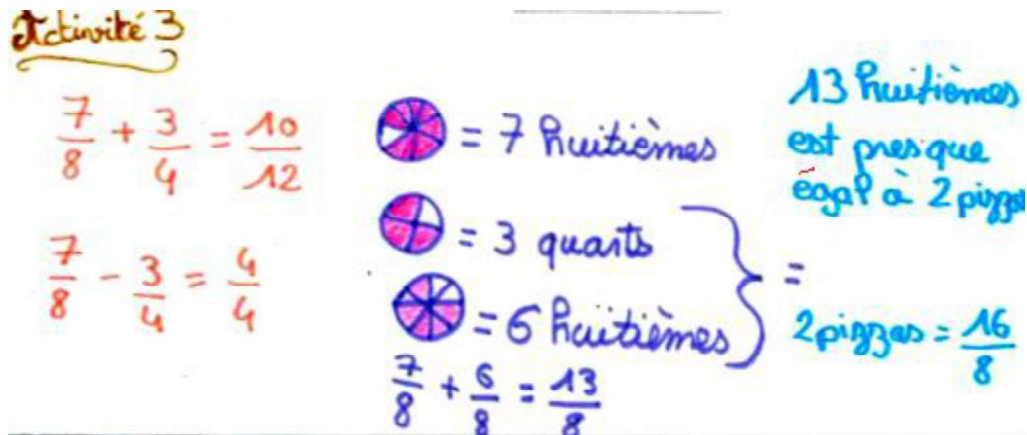 Activité 3
7/8 + 3/4 = 10/12
7/8 - 3/4 = 4/4
= 7 huitièmes
= 3 quarts
= 6 huitièmes
7/8 + 6/8 = 13/8
=
13 huitièmes
est presque
égal à 2 pizzas
2 pizzas = 16/8